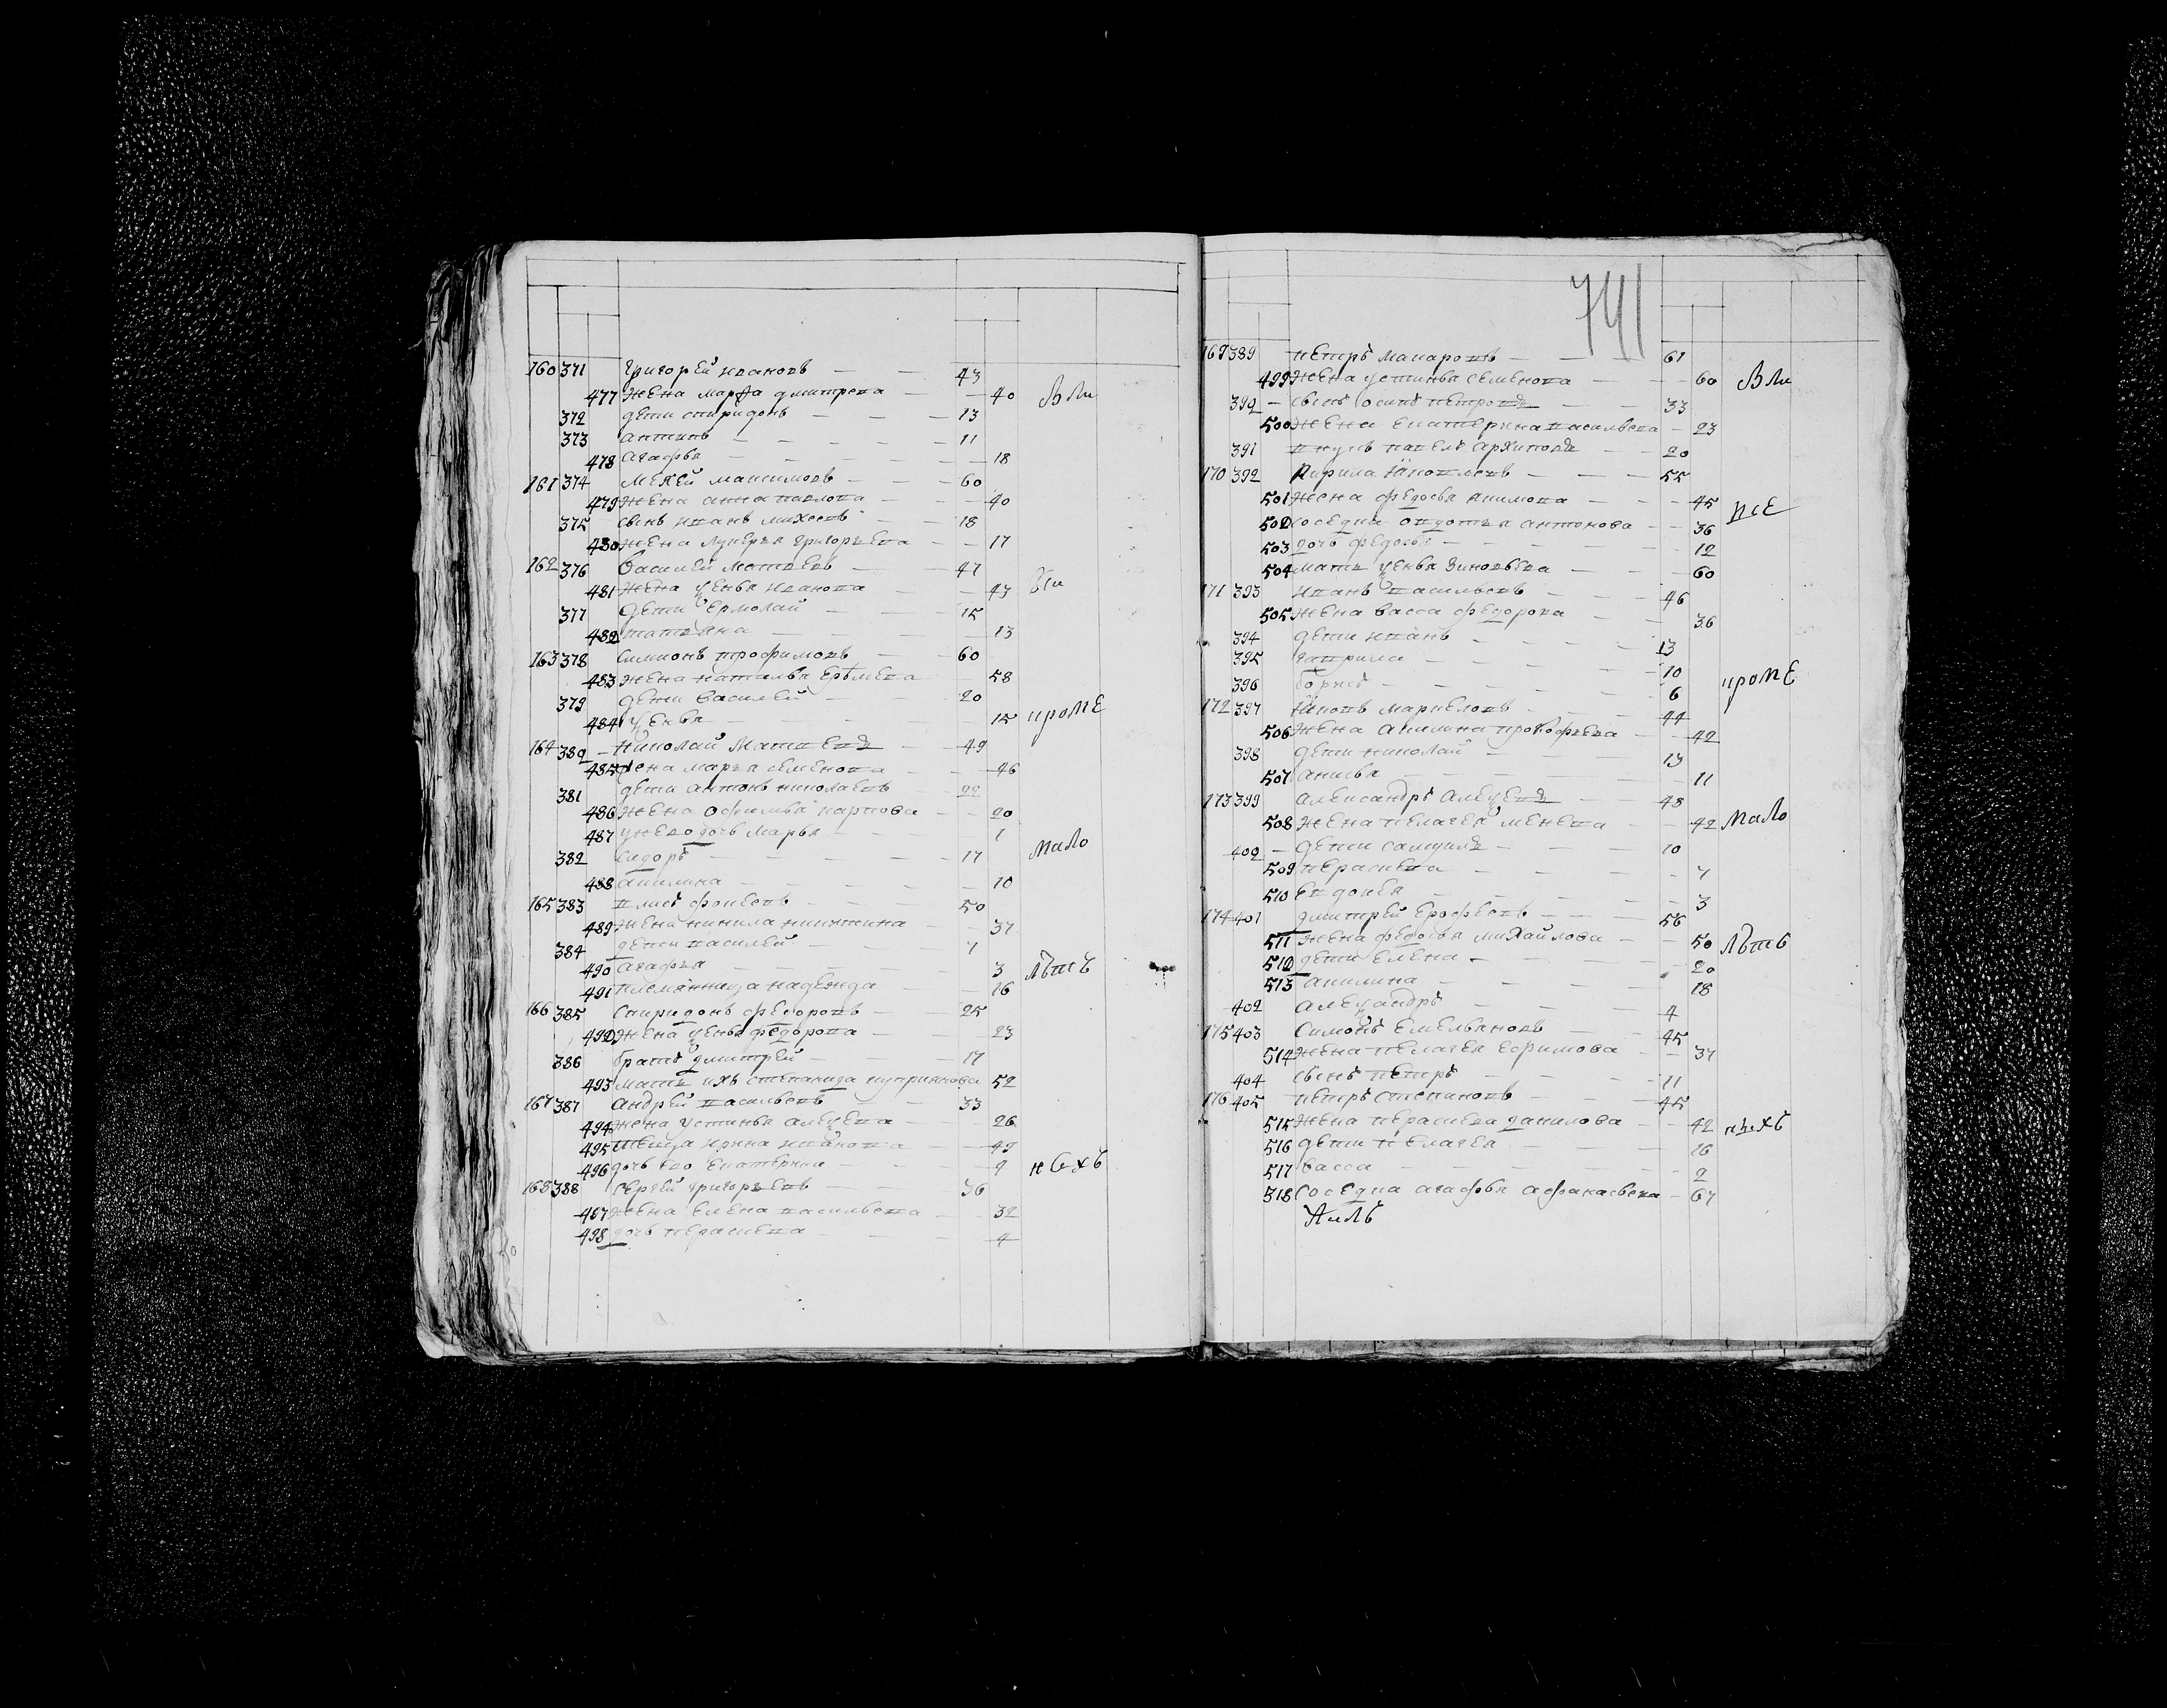 160 371 Григорей ивановъ 43
477 жена марѳа дмитрева 40 Бы
372 дети спиридонъ 13
373 антипъ 11
478 агафья 18
161 374 Мекей максимовъ 60
479 жена анна павлова 40
375 сынъ иванъ михеевъ 18
480 жена лукерья григорьева 17
162 376 Василей матвѣевъ 47
481 жена ценья иванова 43
377 дети ермолай 15
482 татьяна 13
163 378 Симионъ трофимовъ 60
483 жена наталья ерѣмева 58
379 дети василей 20
484 ценья 15 кроме
164 380 николай матвевъ 49
485 жена марья семенова 46
381 дети антонъ николаевъ 22
486 жена офимья карпова 20
487 унего дочь марья 1
382 сидоръ 17 мало
488 акилина 10
165 383 власъ фокеевъ 50
489 жена никила никитина 37
384 дети василей 7
490 агафья 3 лѣтъ
491 племянница надежда 16
166 385 Спиридонъ федоровъ 25
492 жена ценья федорова 23
386 братъ дмитрей 17
493 мать ихъ степанида куприянова 52
167 387 андрей васильевъ 33
494 жена устинья алецева 26
495 теща ирина иванова 49
496 дочь ево екатерина 9 ныхъ
168 388 Сергей григорьевъ 36
497 жена елена васильева 32
498 дочь прасковья 4
741
169 389 петръ макаровъ 61
499 жена устинья семенова 60
390 сынъ осипъ петровъ 33
500 жена екатерина васильева 23
391 внукъ павелъ архиповъ 20
170 392 Кирила яковлевъ 55
501 жена федосья акимова 45 все
502 соседка овдотья антонова 36
503 дочь федосья 12
504 мать ценья зиновьева 60
171 393 иванъ васильевъ 46
505 жена васса федорова 36
394 дети иванъ 13
395 гаврила 10
396 борисъ 6 кроме
172 397 яковъ маркеловъ 44
506 жена акилина прокофьева 42
398 дети николай 13
507 анисья 11
173 399 александръ алецевъ 48
508 жена пелагея 42 мало
400 дети самуилъ 10
509 прасковья 7
510 евдокея 3
174 401 дмитрей ерофеевъ 56
511 жена федосья михайлова 50 лѣтъ
512 дети елена 20
513 акилина 18
402 алецандръ 4
175 403 Симонъ емельяновъ 45
514 жена пелагея ефимова 37
404 сынъ петръ 11
176 405 петръ степановъ 45
515 жена прасковья данилова 42 ныхъ
516 дети пелагея 16
517 васса 2
518 соседка агафья афанасьева 67